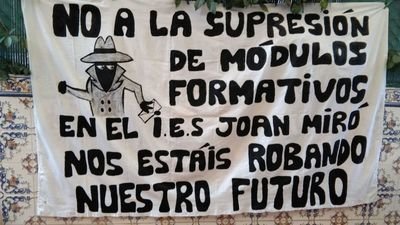 NO A LA SUPRESIÓN
DE MÓDULOS
FORMATIVOS
EN EL i.E.S JOAN MIRÓ
NOS ESTÁIS ROBANDO
NUESTRO FUTURO